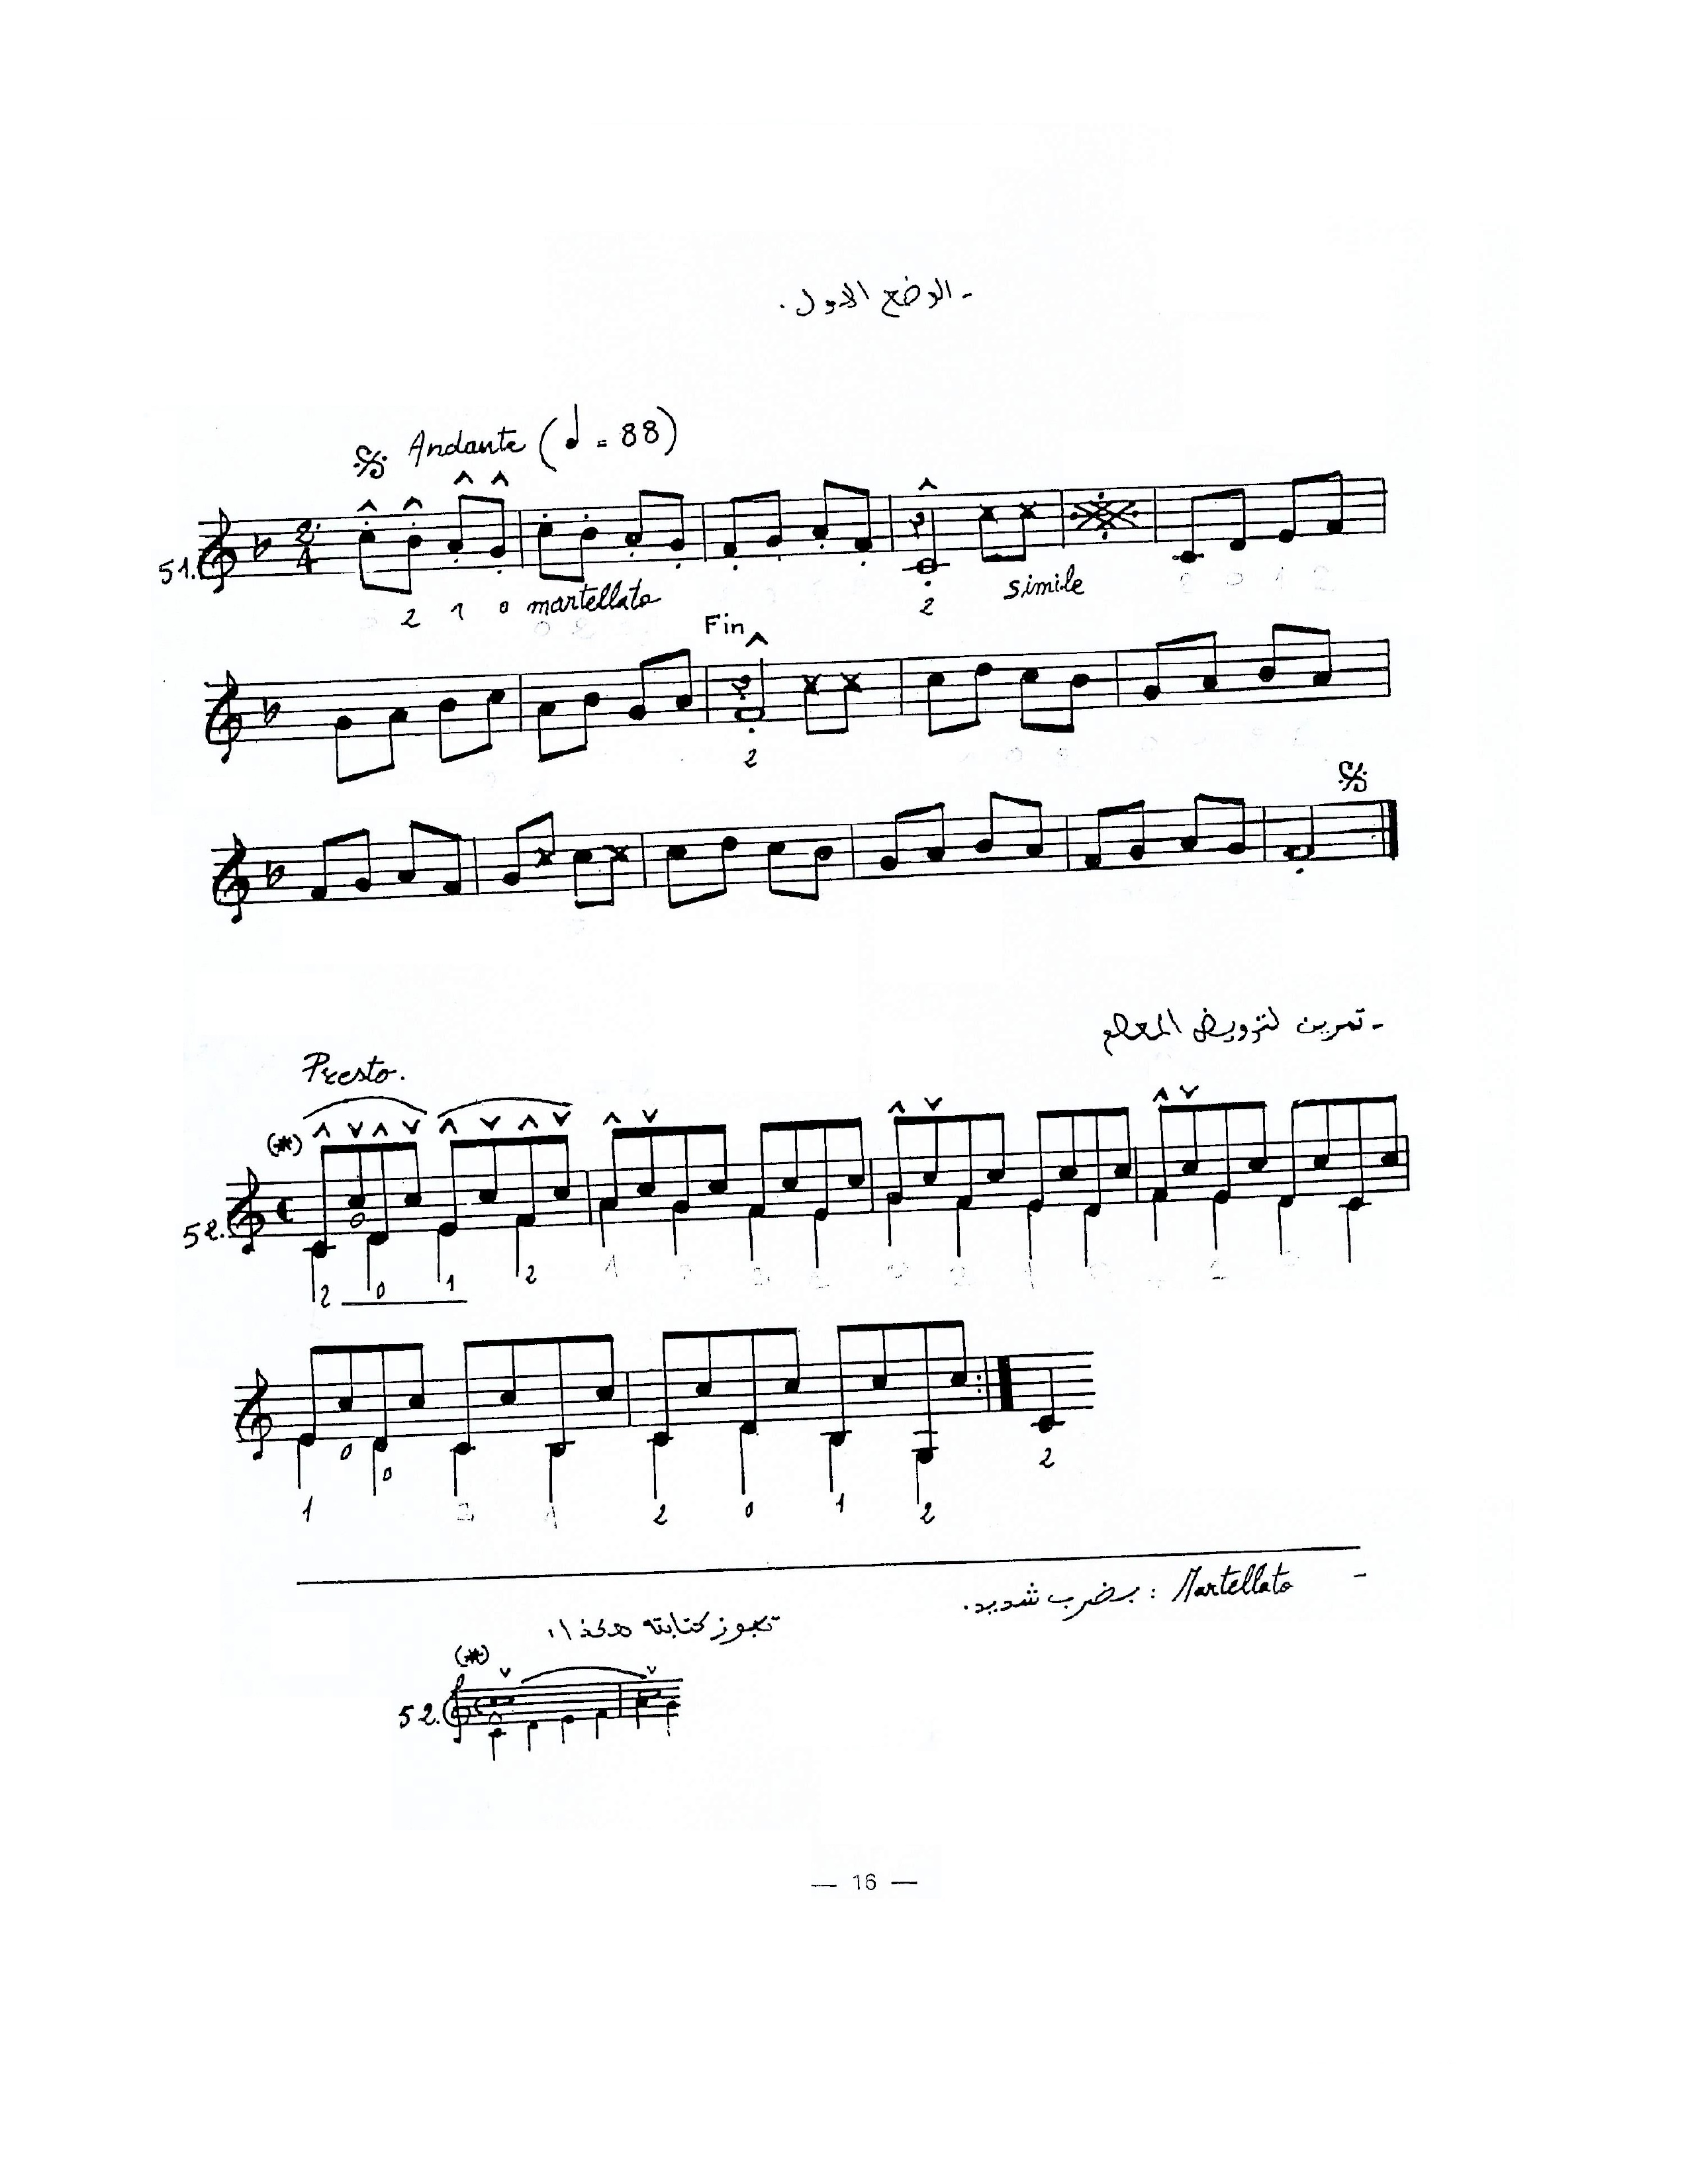 - الوضع الاول .
Andante (♩ = 88)
51.
2 4
2 1 0 martellato 2 simile
Fin
2
- تمرين لترويض المعصم
Presto.
(*)
52.
0
2 0 1 2
0 0
1 2 0 1 2 2
- Martellato : بضرب شديد.
تجوز كتابته هكذا :
(*)
52.
— 16 —